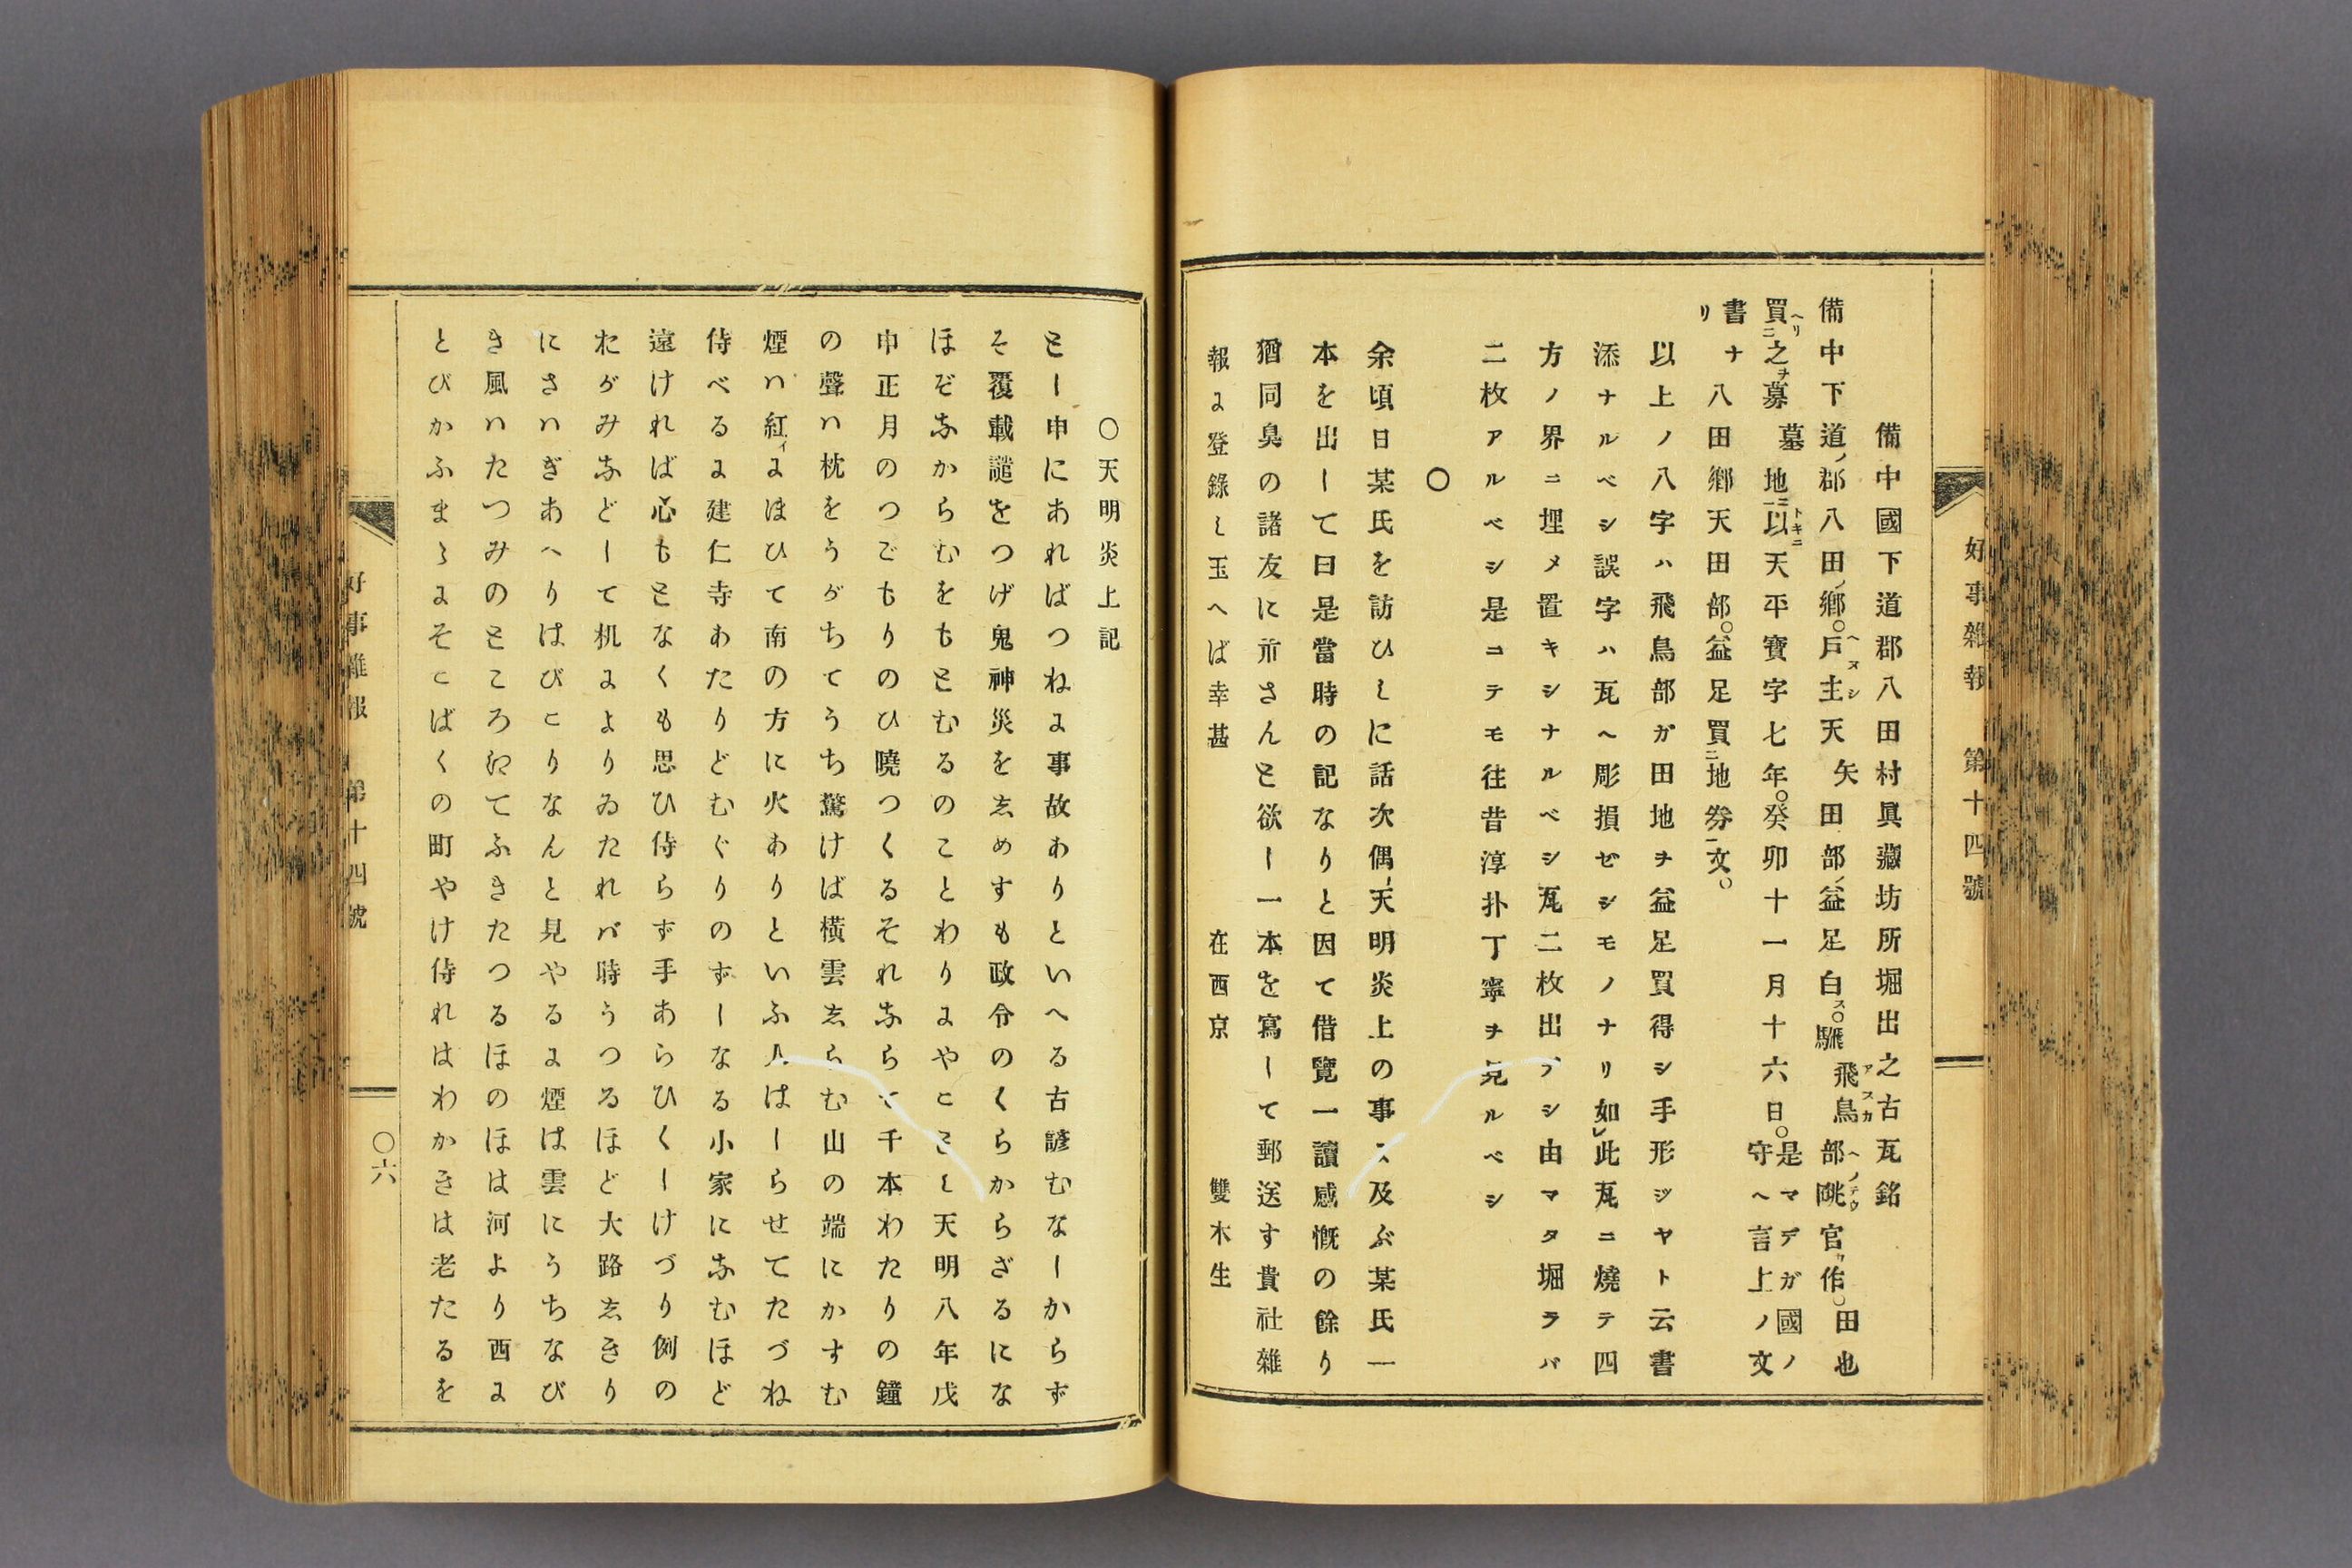 好事雜報　第十四號
備中國下道郡八田村眞藏坊所堀出之古瓦銘
備中下道ノ郡八田ノ鄉○戶主天矢田部ノ益足白ス○飛鳥部官作○田也
買ニ之ヲ墓地ニ以天平寶字七年○癸卯十一月十六日○是マデガ國ノ守ヘ言上ノ文
書ナリ八田鄉天田部○益足買ニ地券一文○
以上ノ八字ハ飛鳥部ガ田地ヲ益足買得シ手形ジヤト云書
添ナルベシ誤字ハ瓦ヘ彫損ゼシモノナリ如レ此瓦ニ燒テ四
方ノ界ニ埋メ置キシナルベシ瓦二枚出デシ由マタ堀ラバ
二枚アルベシ是コテモ往昔淳朴丁寧ヲ見ルベシ
○
余頃日某氏を訪ひしに話次偶〻天明炎上の事に及ぶ某氏一
本を出して曰是當時の記なりと因て借覽一讀感慨の餘り
猶同臭の諸友に示さんと欲し一本を寫して郵送す貴社雜
報に登錄し玉へば幸甚　在西京　雙木生
○天明炎上記
とし申にあればつねに事故ありといへる古諺むなしからず
そ覆載譴をつげ鬼神災をしめすも政令のくらからざるにな
ほぞなからむをもとむるのことわりにやことし天明八年戊
申正月のつごもりのひ曉つくるそれならで千本わたりの鐘
の聲ハ枕をうがちてうち驚けば橫雲しらむ山の端にかすむ
煙ハ紅イにほひて南の方に火ありといふ人はしらせてたづね
侍べるに建仁寺わたりどむぐりのずしなる小家になむほど
遠ければ心もとなくも思ひ侍らず手あらひくしけづり例の
たがみなどして机によりゐたれバ時うつるほど大路しきり
にさハぎあへりはびこりなんと見やるに煙は雲にうちなび
き風ハたつみのところにてふきたつるほのほは河より西に
とびかふまゝにそこばくの町やけ侍れはわかきは老たるを
好事雜報　第十四號
○六